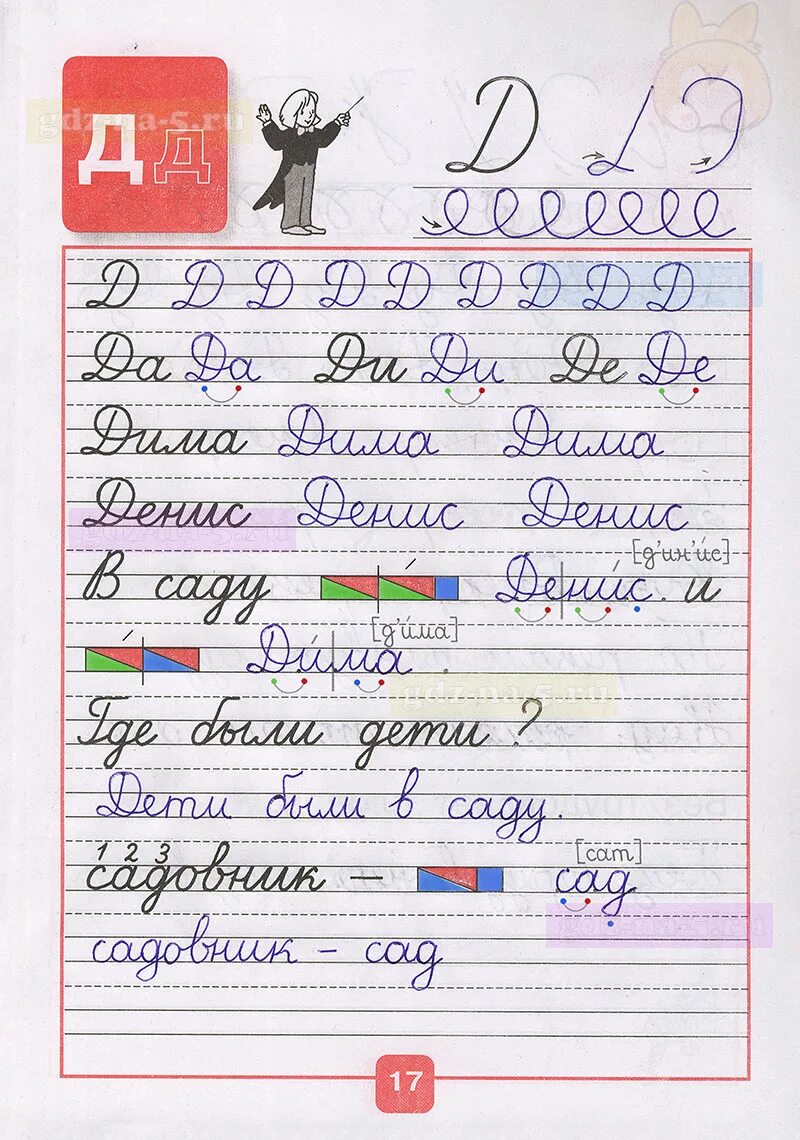 Дд
Д
Д Д Д Д Д Д Д Д Д
Да Да Ди Ди Де Де
Дима Дима Дима
Денис Денис Денис
[д'ин'и́с]
В саду Дени́с и
[д'и́ма]
Ди́ма .
Где были дети ?
Дети были в саду.
1 2 3 [сат]
садовник – сад
садовник – сад
17
gdz-na-5.ru
gdz-na-5.ru
gdz-na-5.ru
gdz-na-5.ru